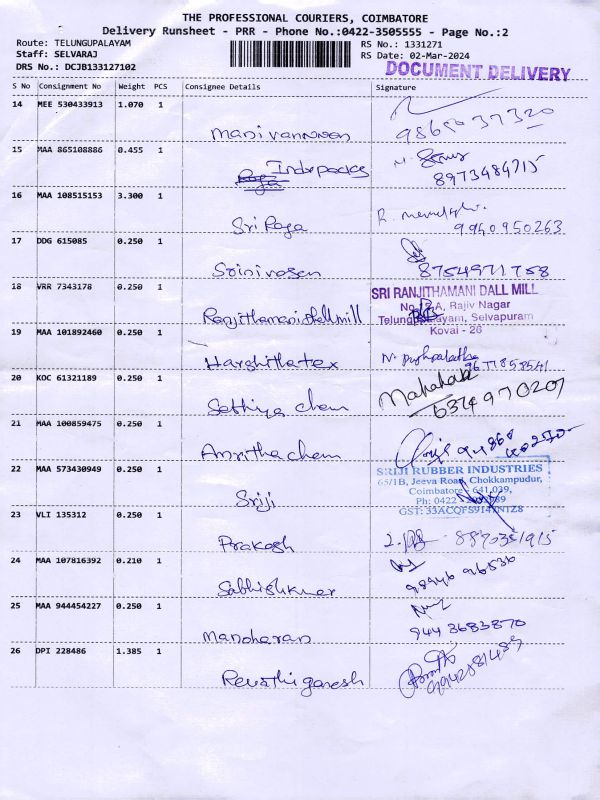 THE PROFESSIONAL COURIERS, COIMBATORE
Delivery Runsheet - PRR - Phone No.:0422-3505555 - Page No.:2
Route: TELUNGUPALAYAM RS No.: 1331271
Staff: SELVARAJ RS Date: 02-Mar-2024
DRS No.: DCJB133127102 DOCUMENT DELIVERY
S No Consignment No Weight PCS Consignee Details Signature
14 MEE 530433913 1.070 1
Manivannan
15 MAA 865108886 0.455 1
Indvpacks
8973484715
16 MAA 108515153 3.300 1
Sri Raja 9940950263
17 DDG 615085 0.250 1
Srinivasen 8754971758
18 VRR 7343178 0.250 1
SRI RANJITHAMANI DALL MILL
Rajiv Nagar
Telungupalayam, Selvapuram
Ranjithamani dall mill Kovai - 26
19 MAA 101892460 0.250 1
Harshithatex
20 KOC 61321189 0.250 1
Sathiya chem 6374970207
21 MAA 100859475 0.250 1
Amrithachem
22 MAA 573430949 0.250 1
SRIJI RUBBER INDUSTRIES
65/1B, Jeeva Road, Chokkampudur,
Coimbatore - 641 039,
Sriji Ph: 0422
23 VLI 135312 0.250 1
Prakash
24 MAA 107816392 0.210 1
Sabhishkumar 98946 96536
25 MAA 944454227 0.250 1
Manoharan 944 3683870
26 DPI 228486 1.385 1
Revathi ganesh